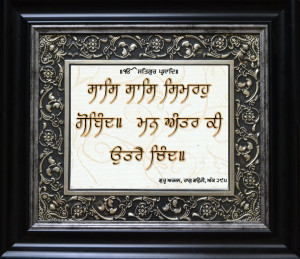 ੴ ਸਤਿਗੁਰ ਪ੍ਰਸਾਦਿ॥
ਸਾਸਿ ਸਾਸਿ ਸਿਮਰਹੁ
ਗੋਬਿੰਦ॥ ਮਨ ਅੰਤਰ ਕੀ
ਉਤਰੈ ਚਿੰਦ॥
ਗੁਰੂ ਅਰਜਨ, ਰਾਗੁ ਗਉੜੀ, ਅੰਕ ੨੯੫